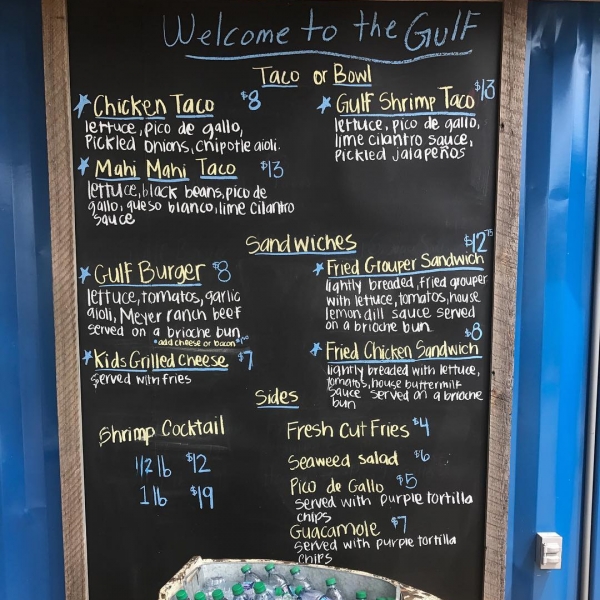 Welcome to the Gulf
Taco or Bowl
Chicken Taco $8
lettuce, pico de gallo,
Pickled onions, chipotle aioli.
Mahi Mahi Taco $13
lettuce, black beans, pico de
gallo, queso blanco, lime cilantro
sauce
Gulf Shrimp Taco $13
lettuce, pico de gallo,
lime cilantro sauce,
pickled jalapeños
Sandwiches
Gulf Burger $8
lettuce, tomatos, garlic
aioli, Meyer ranch beef
served on a brioche bun
*add cheese or bacon
Kids Grilled Cheese $7
served with fries
$12.75
Fried Grouper Sandwich
lightly breaded, fried grouper
with lettuce, tomatos, house
lemon dill sauce served
on a brioche bun
$8
Fried Chicken Sandwich
lightly breaded with lettuce,
tomatos, house buttermilk
sauce served on a brioche
bun
Sides
Shrimp Cocktail
1/2 lb $12
1 lb $19
Fresh Cut Fries $4
Seaweed Salad $6
Pico de Gallo $5
served with purple tortilla
chips
Guacamole $7
served with purple tortilla
chips